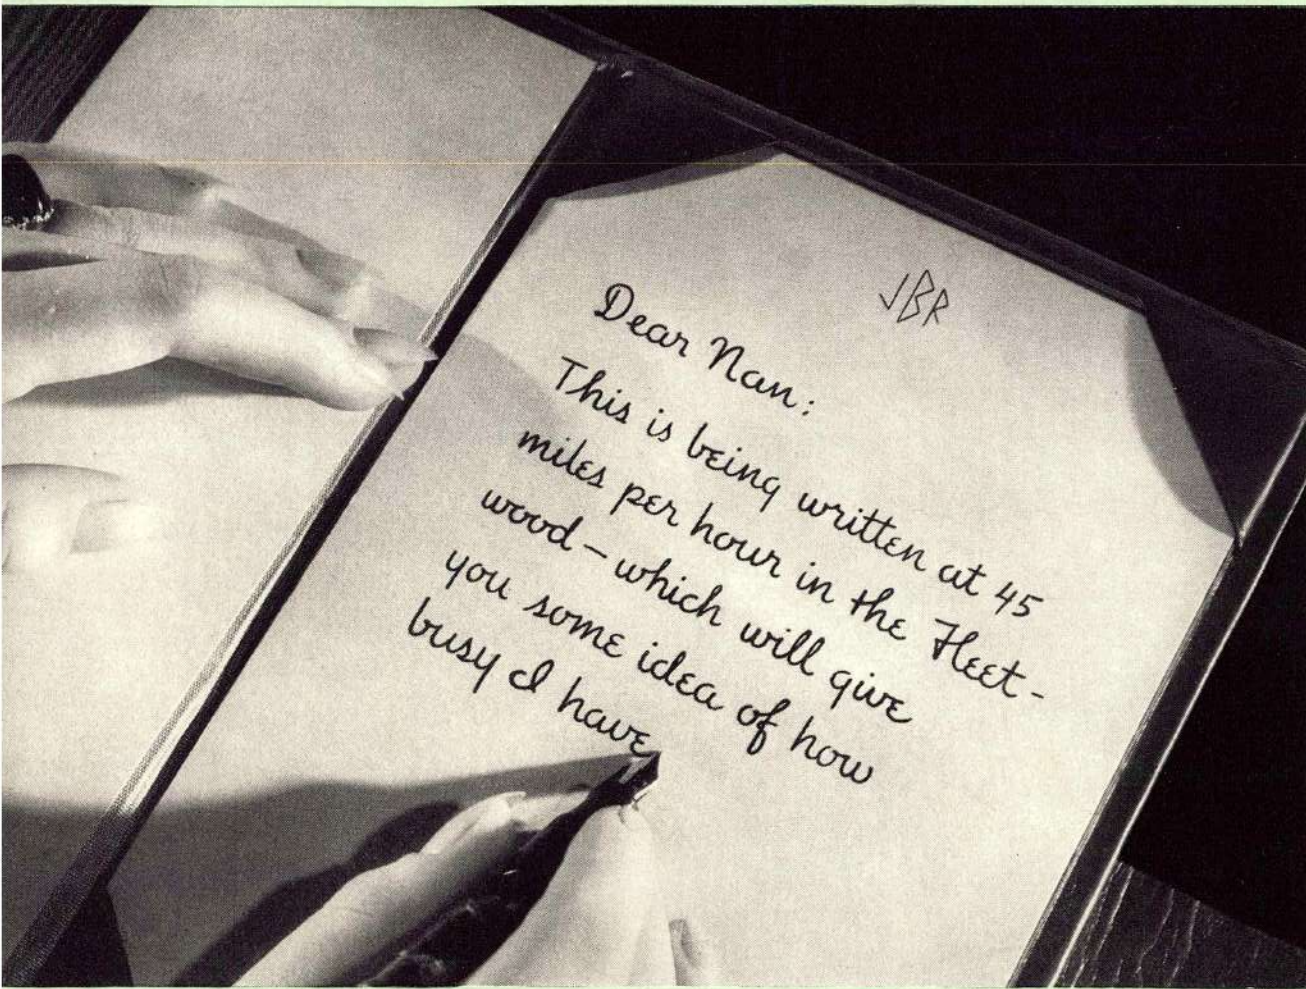 JBR
Dear Nan:
This is being written at 45
miles per hour in the Fleet-
wood—which will give
you some idea of how
busy I have